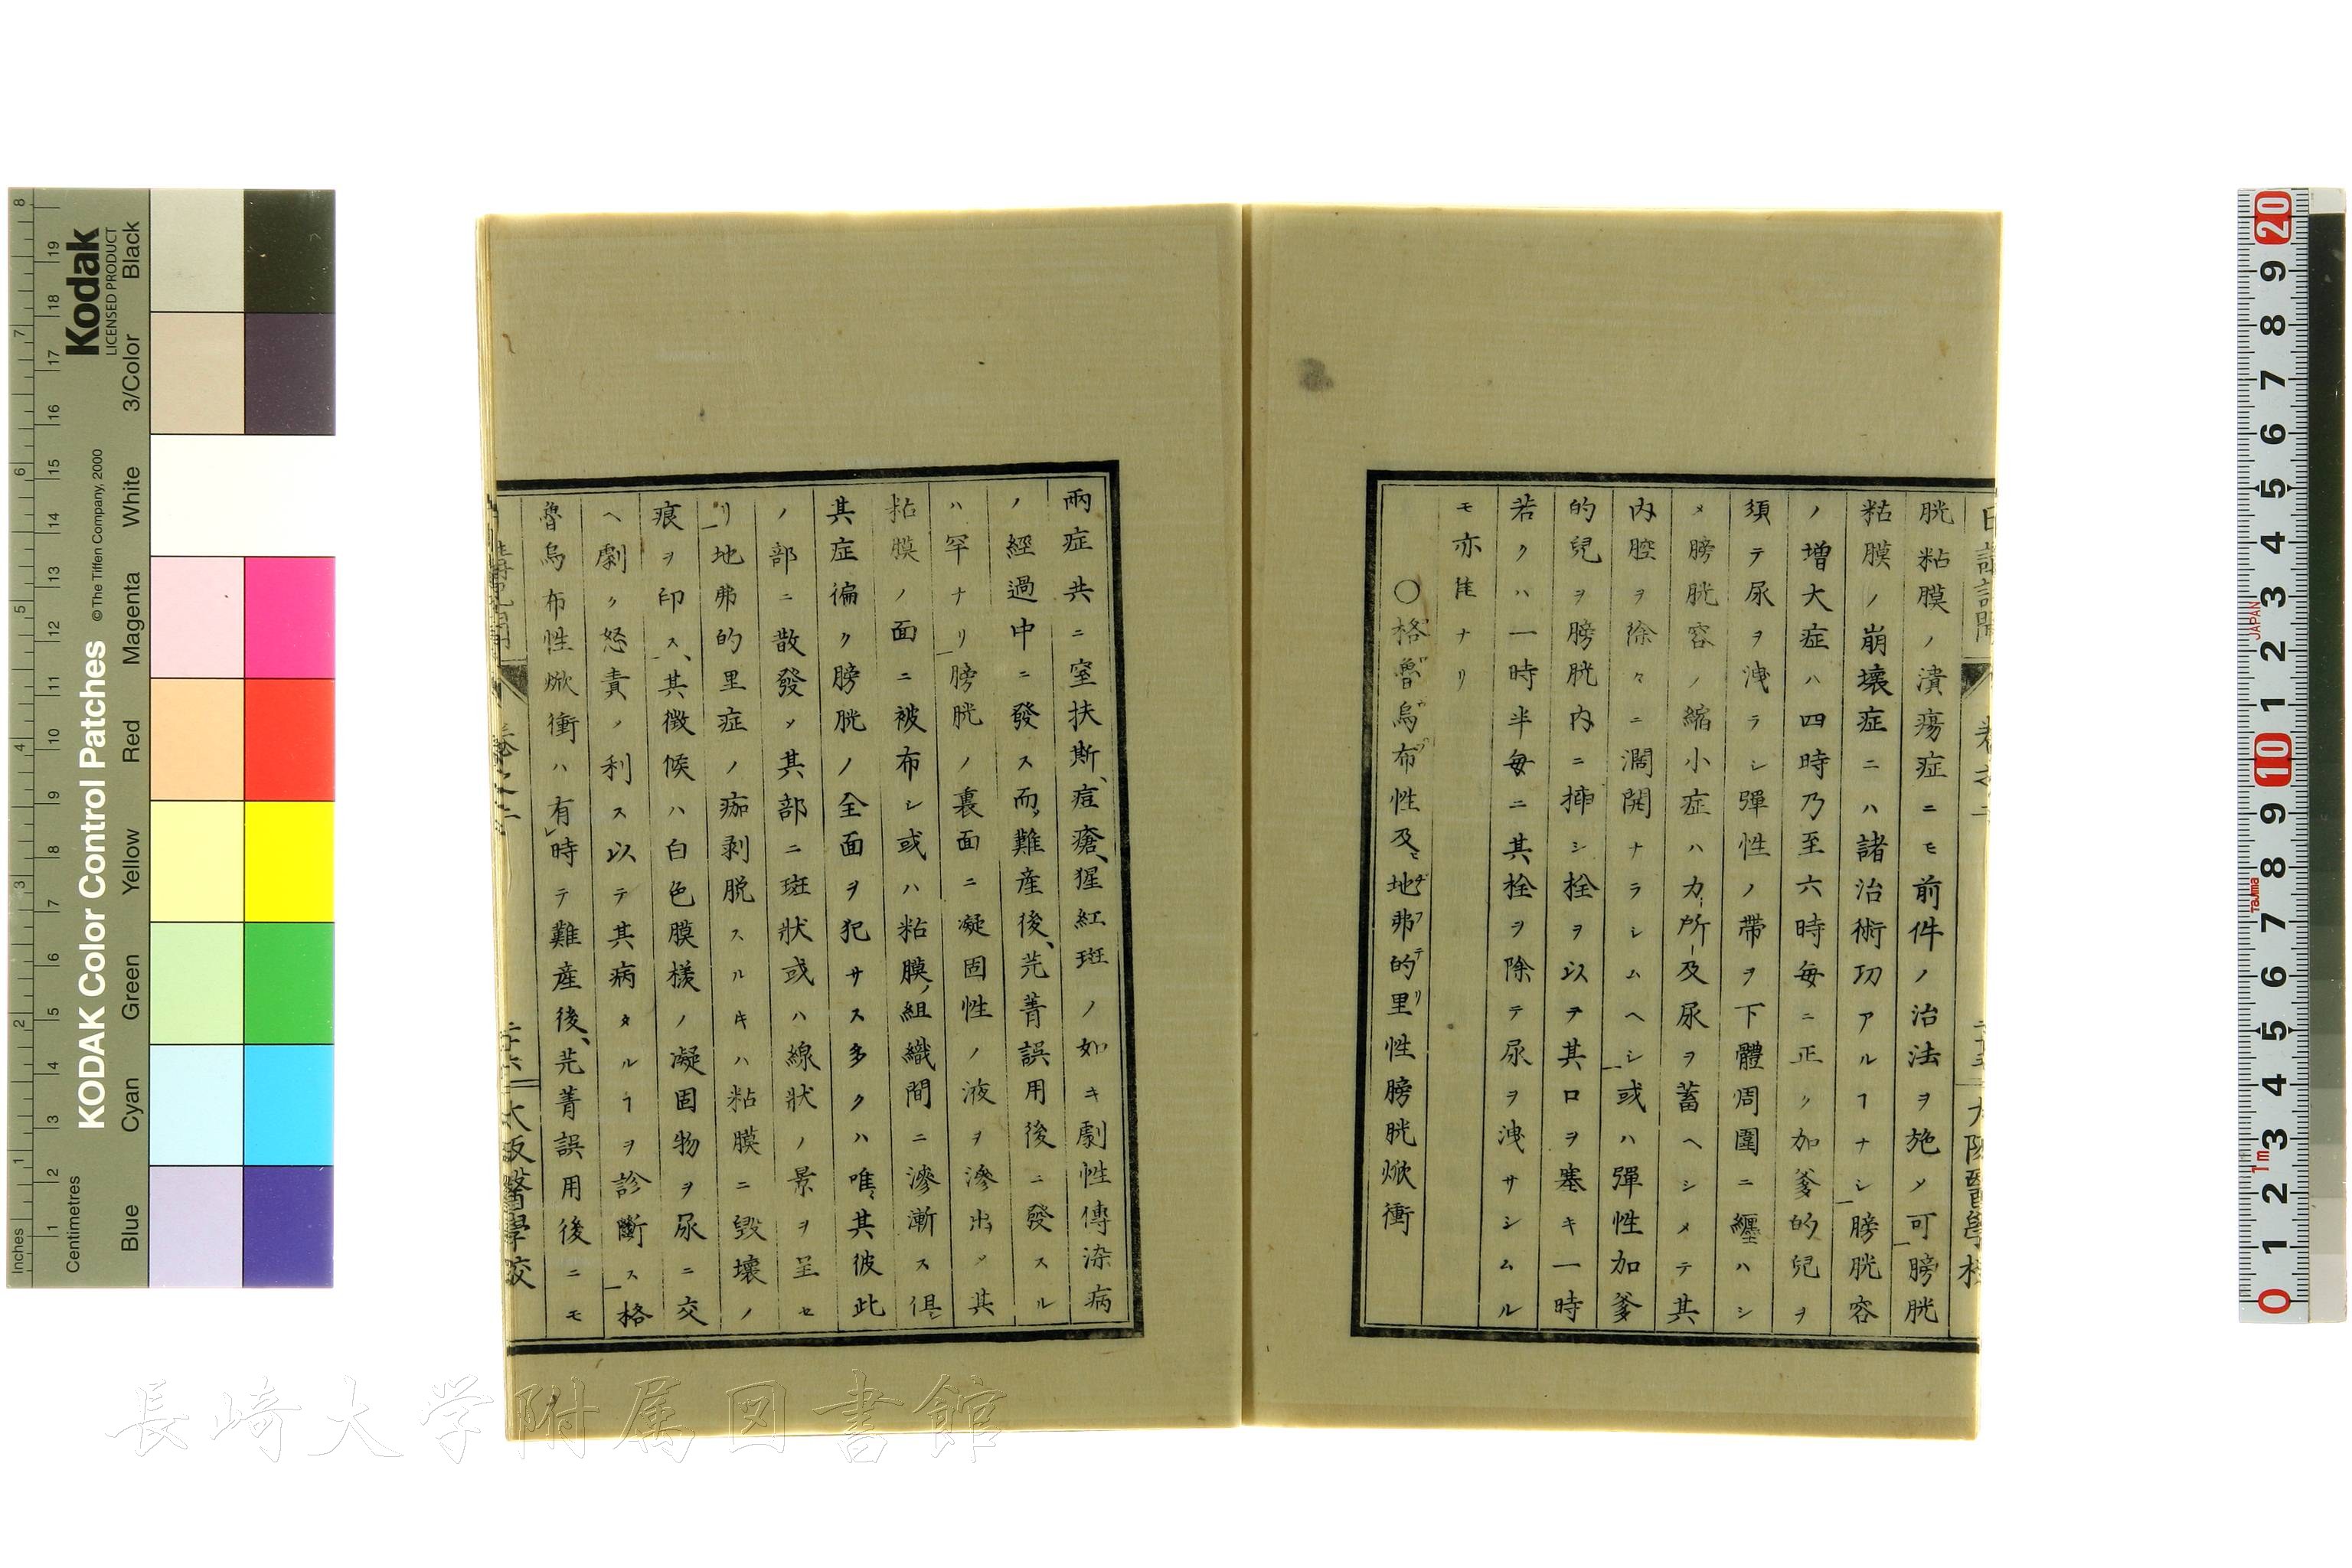 胱粘膜ノ潰瘍症ニモ前件ノ治法ヲ施メ可膀胱
粘膜ノ崩壊症ニハ諸治術功アルヿナシ膀胱容
ノ増大症ハ四時乃至六時毎ニ正ク加爹的兒ヲ
須テ尿ヲ洩ラシ彈性ノ帶ヲ下體周圍ニ纏ハシ
メ膀胱容ノ縮小症ハ力所及尿ヲ蓄ヘシメテ其
内腔ヲ徐々ニ濶開ナラシムヘシ或ハ彈性加爹
的兒ヲ膀胱内ニ挿シ栓ヲ以テ其口ヲ塞キ一時
若クハ一時半毎ニ其栓ヲ除テ尿ヲ洩サシムル
モ亦佳ナリ
○格魯烏布性及ヒ地弗的里性膀胱焮衝
巻之二
兩症共ニ窒扶斯、痘瘡、猩紅斑ノ如キ劇性傳染病
ノ經過中ニ發ス而難産後、芫菁誤用後ニ發スル
ハ罕ナリ膀胱ノ裏面ニ凝固性ノ液ヲ滲出メ其
粘膜ノ面ニ被布シ或ハ粘膜ノ組織間ニ滲漸ス倶ニ
其症徧ク膀胱ノ全面ヲ犯サス多クハ唯其彼此
ノ部ニ散發メ其部ニ斑狀或ハ線狀ノ景ヲ呈セ
リ地弗的里症ノ痂剥脱スルキハ粘膜ニ毀壊ノ
痕ヲ印ス、其徴候ハ白色膜様ノ凝固物ヲ尿ニ交
ヘ劇ク怒責ノ利ス以テ其病タルヿヲ診斷ス格
魯烏布性焮衝ハ有時テ難産後、芫菁誤用後ニモ
巻之二
二十六
大阪醫學校
Kodak
LICENSED PRODUCT
KODAK Color Control Patches
©The Tiffen Company, 2000
Inches
Centimetres
Blue
Cyan
Green
Yellow
Red
Magenta
White
3/Color
Black
JAPAN
Tajima
1m
長崎大学附属図書館